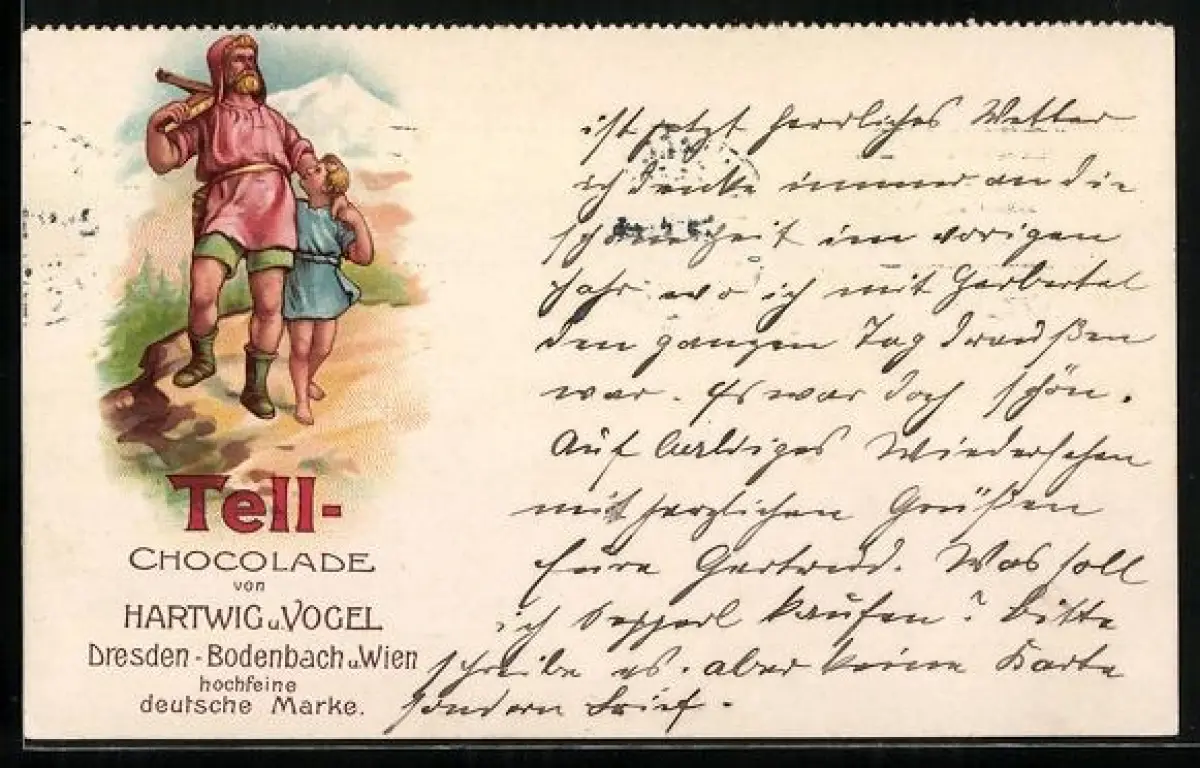 Tell-
CHOCOLADE
von
HARTWIG u. VOGEL
Dresden - Bodenbach u. Wien
hochfeine
deutsche Marke.
ist jetzt herrliches Wetter
ich denke immer an die
schöne Zeit im vorigen
Jahr wo ich mit
den ganzen Tag draußen
war. Es war doch schön.
Auf baldiges Wiedersehen
mit herzlichen Grüßen
Eure Gertrud. Was soll
ich Sepperl kaufen? Bitte
schreibe es. aber keine Karte
sondern Brief.